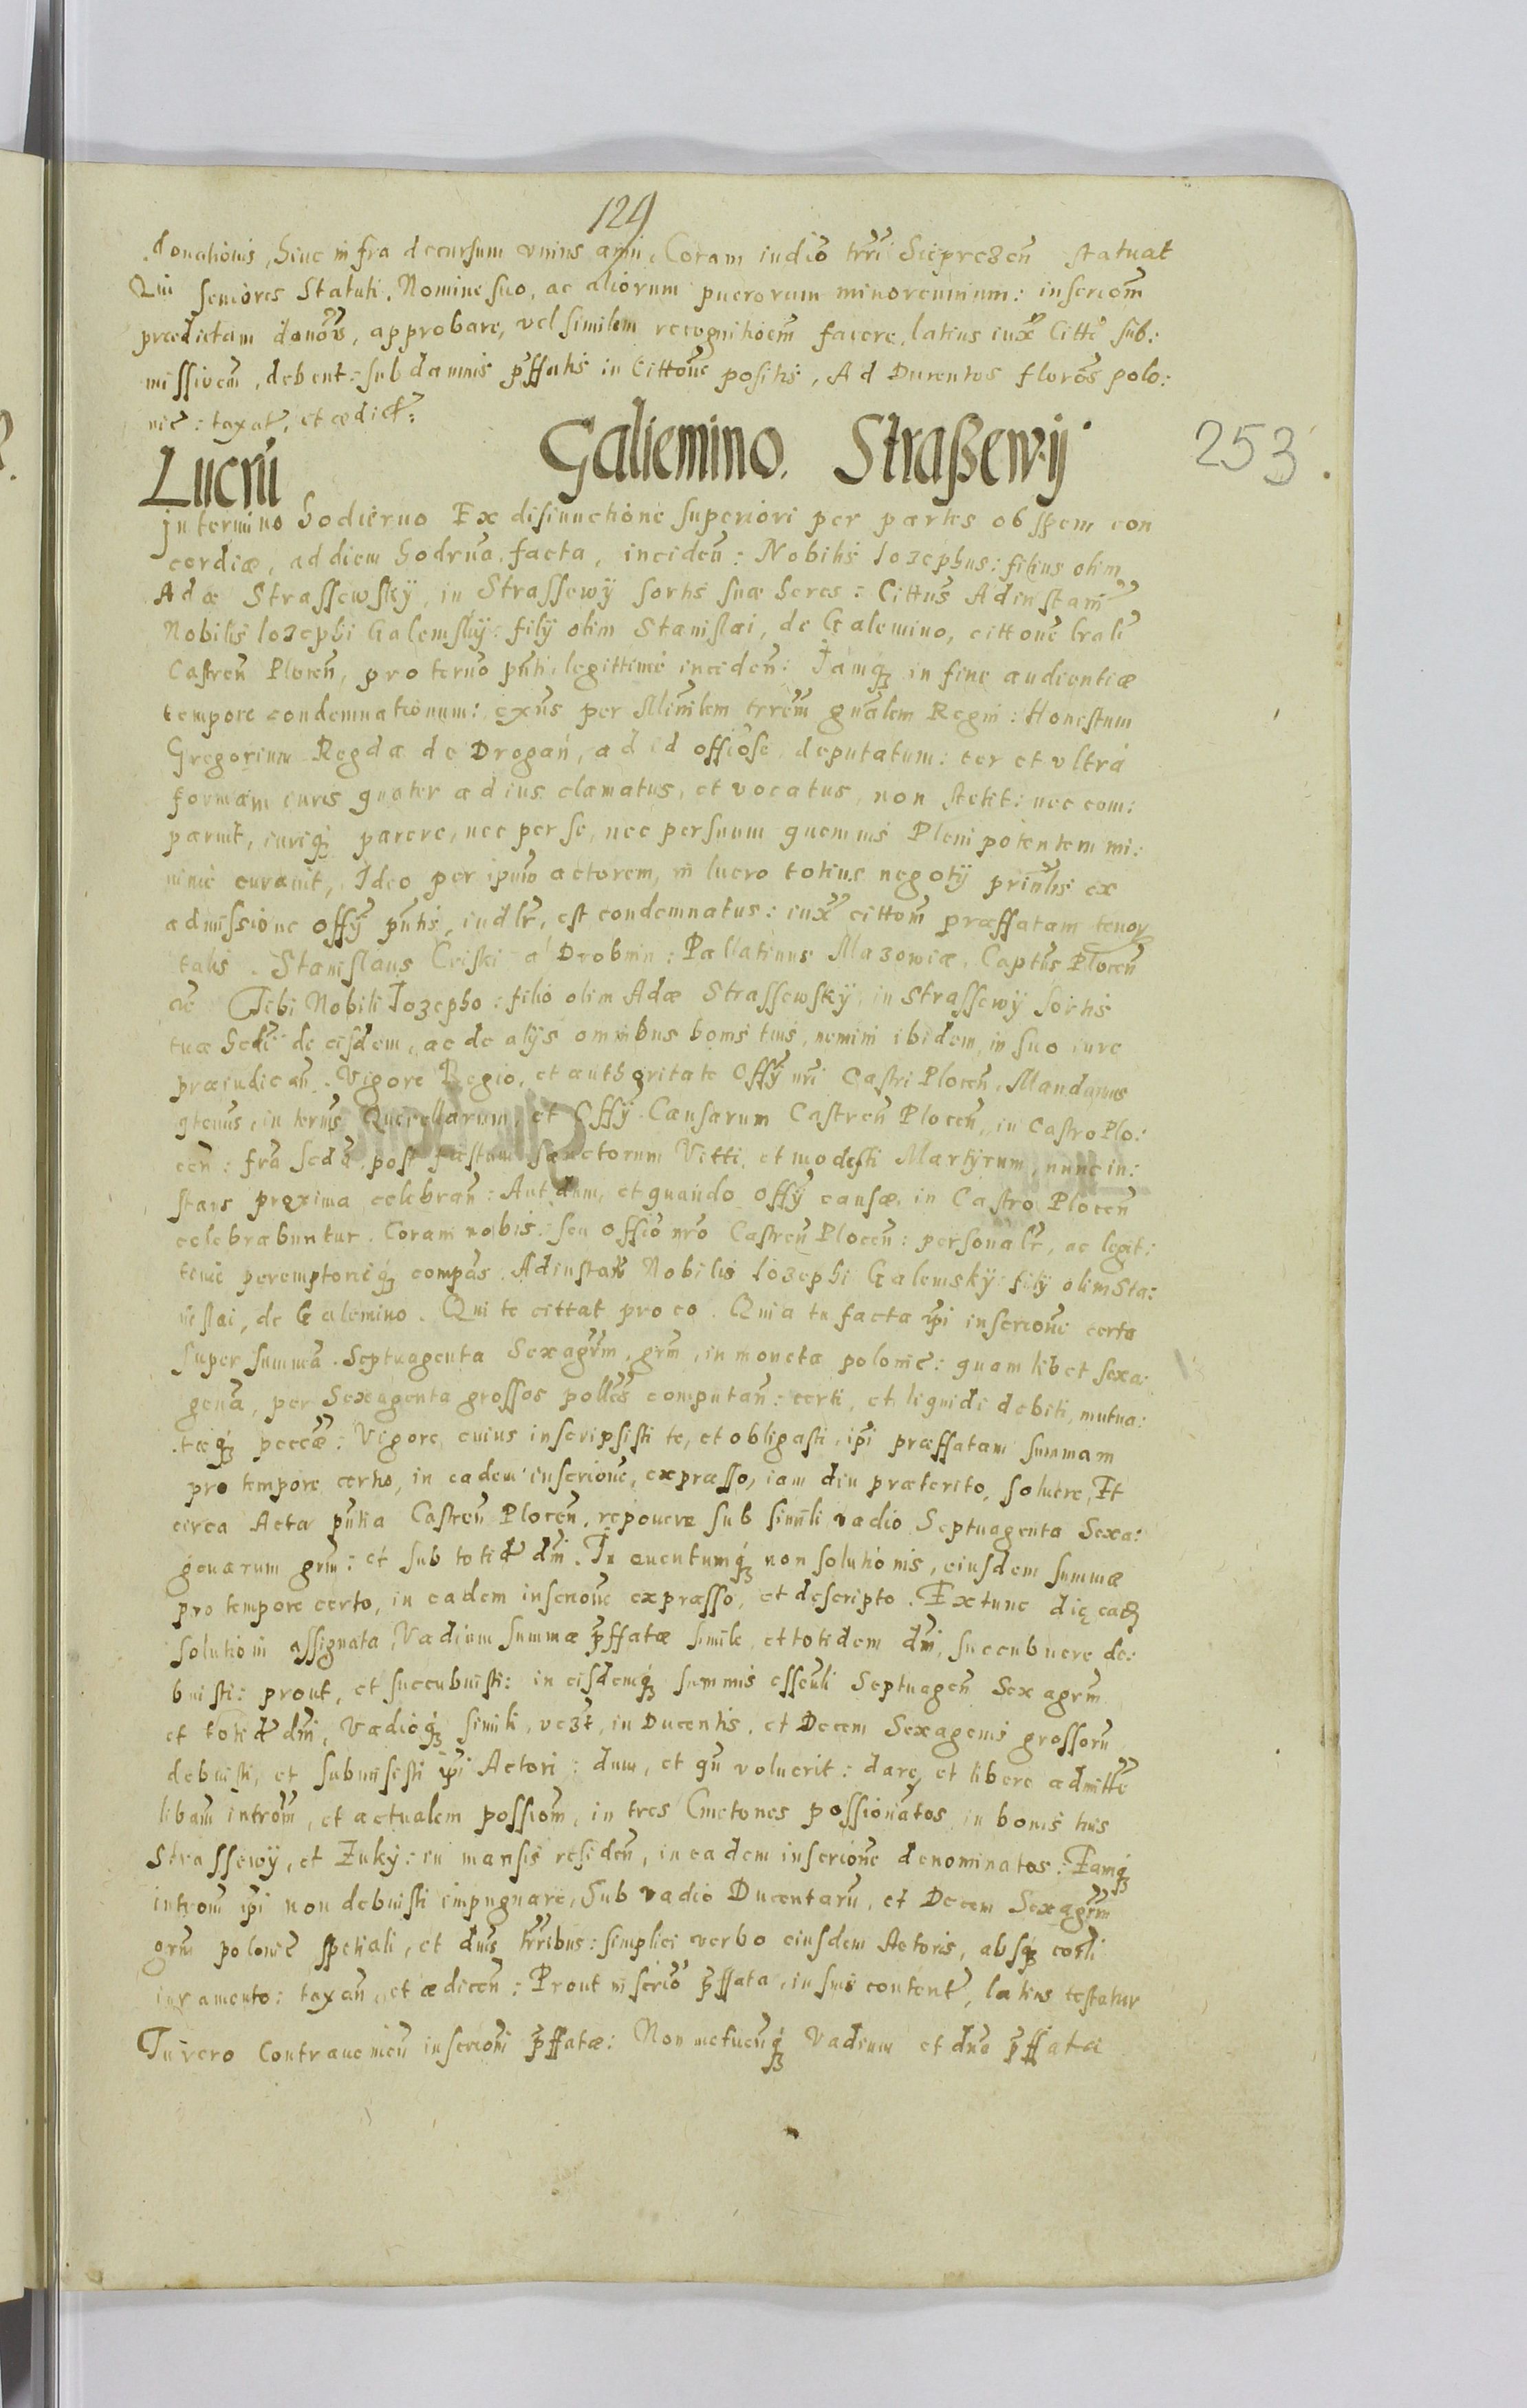 129
donationis, hinc infra decursum vnius anni, Coram iudio trri Sieprczen statuat
Qui seniores Statuti, Nomine suo, ac aliorum puerorum minorennium: inscriom
praedictam donois, approbare, vel similem recognitioem facere, latius iux Citte sub:
missivem, debent: sub damnis pffatis in Cittone positis, Ad Ducentos floros polo:
nic: taxat, et aedict:
Lucru Galiemino. Straßewij
253
In termino hodierno Ex disiunctione superiori per partes ob spem con
cordiæ, ad diem hodrna facta, inciden: Nobilis Iozephus: filius olim
Adæ Strassewsky, in Strassewÿ sortis suæ heres: Cittus Ad instam
Nobilis Iozephi Galemskÿ: filÿ olim Stanislai, de Galemino, cittone lrali
Castren Plocen, pro terno pnti, legittime inceden: Iamq in fine audientiæ
tempore condemnationum: exns per Minilem trrem gnalem Regni: Honestum
Gregorium Regda de Drogan, ad id offiose deputatum: ter et vltra
formam iuris quater ad ius clamatus, et vocatus, non stetit: nec com:
paruit, iuriq parere, nec per se, nec per suum quemuis Plenipotentem mi:
nime curauit, Ideo per ipum actorem, in lucro totius negotÿ prinlis ex
admissione offÿ pntis, iudlr, est condemnatus: iux cittom præffatam tenor
talis. Stanislaus Criski a Drobnin: Pallatinus Mazowiæ, Captus Plocen
ac Tibi Nobili Iozepho: filio olim Adæ Strassewskÿ, in Strassewÿ sortis
tuæ hedi de eisdem, ac de alÿs omnibus bonis tuis, nemini ibidem in suo iure
præiudican. Vigore Regio, et authoritate Offÿ nri Castri Plocen, Mandamus
qtenus, in ternis Querellarum, et Offÿ Causarum Castren Plocen, in Castro Plo:
cen: fra seda post festum sanctorum Vitti, et modesti Martÿrum, nunc in:
stans proxima celebran: Aut dum, et quando offÿ causæ in Castro Plocen
celebrabuntur. Coram nobis: seu offio nro Castren Plocen: personalr, ac legit:
time peremptorieq compas. Ad instam Nobilis Iozephi Galemskÿ: filÿ olim Sta:
nislai, de Galemino. Qui te cittat pro eo. Quia tu facta ipi inscrione certa
super summa. Septuaginta Sexagrm, grm, in moneta polonic: quamlibet sexa:
gena, per Sexaginta grossos polles computan: certi, et liquidi debiti, mutua:
tæq pecæ: Vigore, cuius inscripsisti te, et obligasti, ipi præffatam summam
pro tempore certo, in eadem inscrione, expræsso, iam diu præterito, soluere, Et
circa Acta pntia Castren Plocen, reponere sub simili vadio Septuaginta Sexa:
genarum grm: et sub totid dm. In euentumq non solutionis, eiusdem summæ
pro tempore certo, in eadem inscrione expræsso, et descripto. Extunc die eaq
solutioni assignata, Vadium summæ pffatæ simile, et totidem dmi, succubuere de:
buisti: prout, et succubuisti: in eisdemq summis essenli Septuagen Sexagrm
et totid dmi, Vadioq simili, vczt, in Ducentis, et Decem Sexagenis grossoru
debuisti, et submisisti ipi Actori: dum, et qn voluerit: dare, et libere admitte
libam introm, et actualem possiom, in tres Cmetones possionatos in bonis tuis
Strassewÿ, et Zukÿ: in mansis residen, in eadem inscrione denominatos: Eamq
introm ipi non debuisti impugnare, Sub vadio Ducentaru, et Decem Sexagrm
grm polonic spetiali, et dnis trribus: simplici verbo eiusdem Actoris, absq corli
iuramento: taxan, et ædicen: Prout inscrio pffata, in sui content, latius testatur
Tu vero Contrauenien inscrioni pffatæ: Non metuenq Vadium et dna pffata